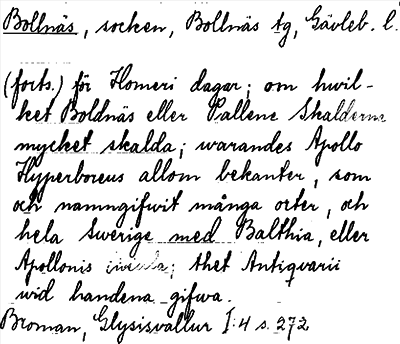 Bollnäs, socken, Bollnäs tg, Gävleb. l.
(forts.) för Homeri dagar; om hwil-
ket Boldnäs eller Pallene Skalderna
mycket skalda; warandes Apollo
Hyperboreus allom bekanter, som
och namngifwit många orter, och
hela Swerige med Balthia, eller
Apollonis insula; thet Antiqvarii
wid handena gifwa.
Broman, Glysisvallur I:4 s. 272